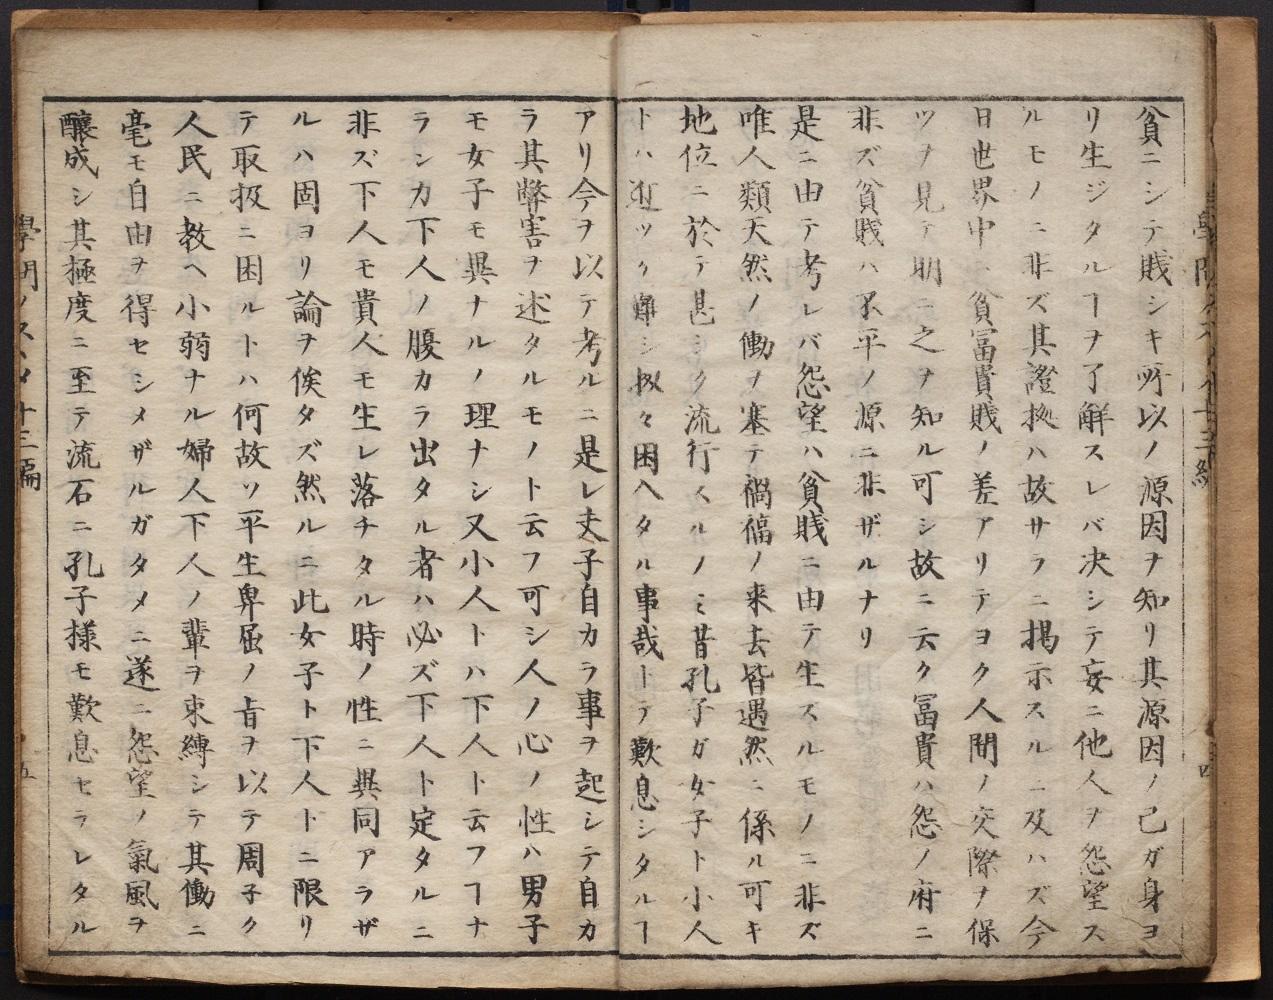 貧ニシテ賎シキ所以ノ源因ヲ知リ其源因ノ己ガ身ヨ
リ生ジタルヿヲ了解スレバ决シテ妄ニ他人ヲ怨望ス
ルモノニ非ズ其證拠ハ故サラニ掲示スルニ及ハズ今
日世界中ニ貧冨貴賎ノ差アリテヨク人間ノ交際ヲ保
ツヲ見テ明ニ之ヲ知ル可シ故ニ云ク冨貴ハ怨ノ府ニ
非ズ貧賎ハ不平ノ源ニ非ザルナリ
是ニ由テ考レバ怨望ハ貧賎ニ由テ生スルモノニ非ズ
唯人類天然ノ働ヲ塞テ禍福ノ来去皆遇然ニ係ル可キ
地位ニ於テ甚シク流行スルノミ昔孔子ガ女子ト小人
トハ近ツケ難シ扨々困入タル事哉トテ歎息シタルヿ
アリ今ヲ以テ考ルニ是レ夫子自カラ事ヲ起シテ自カ
ラ其弊害ヲ述タルモノト云フ可シ人ノ心ノ性ハ男子
モ女子モ異ナルノ理ナシ又小人トハ下人ト云フヿナ
ランカ下人ノ腹カラ出タル者ハ必ズ下人ト定タルニ
非ズ下人モ貴人モ生レ落チタル時ノ性ニ異同アラザ
ルハ固ヨリ論ヲ俟タズ然ルニ此女子ト下人トニ限リ
テ取扱ニ困ルトハ何故ソ平生卑屈ノ旨ヲ以テ周子ク
人民ニ教ヘ小弱ナル婦人下人ノ輩ヲ束縛シテ其働ニ
毫モ自由ヲ得セシメザルガタメニ遂ニ怨望ノ氣風ヲ
醸成シ其極度ニ至テ流石ニ孔子様モ歎息セラレタル
學問ノスヽメ十三編
五